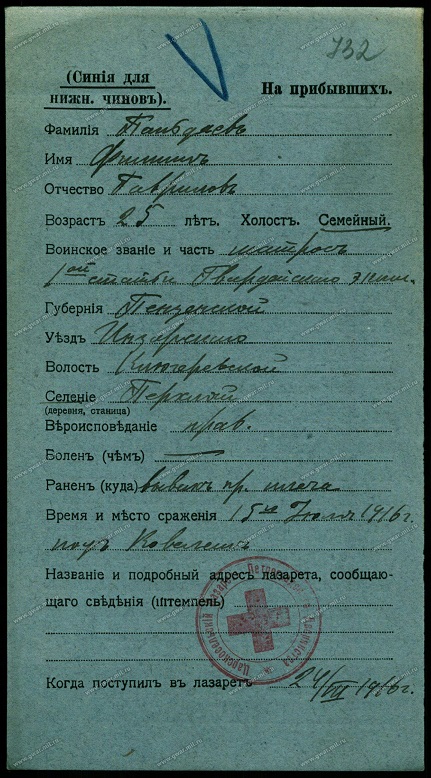 732
(Синія для
нижн. чиновъ).
На прибывшихъ.
Фамилія
Имя Филиппъ
Отчество Гавриловъ
Возрастъ 25 лѣтъ. Холостъ. Семейный.
Воинское званіе и часть матросъ
1ой статьи Гвардейскаго экип.
Губернія Пензенской
Уѣздъ Инсарскаго
Волость
Селеніе
(деревня, станица)
Вѣроисповѣданіе прав.
Боленъ (чѣмъ) —
Раненъ (куда) вывихъ пр. плеча
Время и мѣсто сраженія 15го Іюля 1916 г.
подъ Ковелемъ
Названіе и подробный адресъ лазарета, сообщаю-
щаго свѣдѣнія (штемпель)
Царскосельскій
Когда поступилъ въ лазаретъ 24/VII 1916 г.